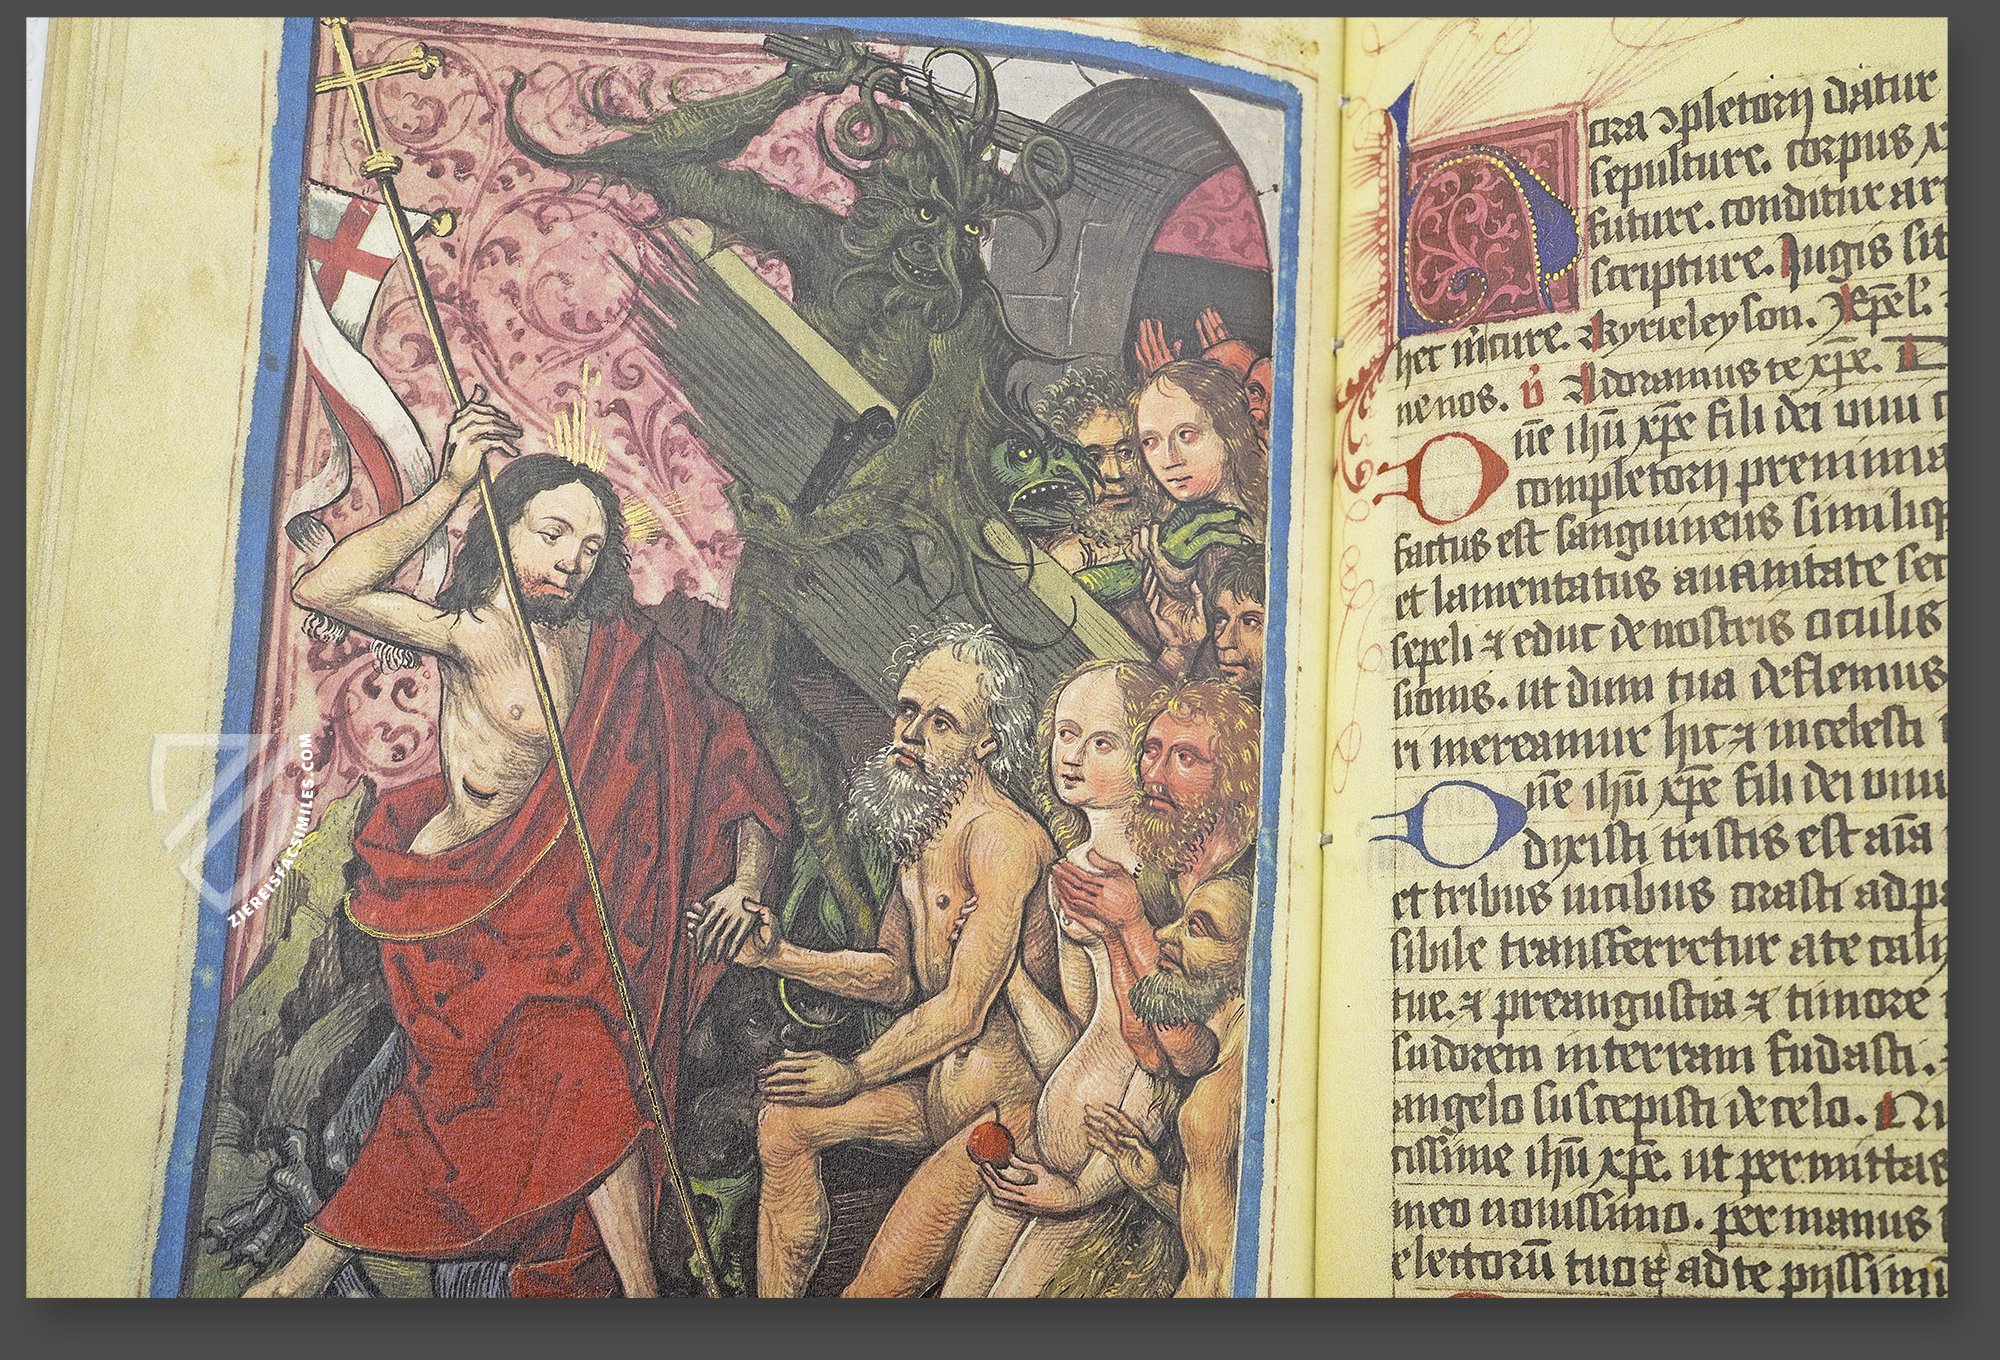 ora ꝯpletorij datur
sepulture. corpus x
future. conditur ar
scripture. Jugis sit
hec m̄ cure. Kyrieleyson.
ne nos. v̄ Adoramus te xp̄e. D
Dn̄e ihū xp̄e fili dei viui
completorij
factus est sanguineus
et lamentatus
sepeli ⁊ educ de nostris oculis
sionis. ut dum tua deflemus
ri mereamur hic ⁊ in celesti
Dn̄e ihū xp̄e fili dei viui
dixisti tristis est aīa
et tribus vicibus orasti ad pa
sibile transferretur a te cali
tue. ⁊ pre angustia ⁊ timore
sudorem in terram fudasti.
angelo suscepisti de celo.
tissime ihū xp̄e. ut permittas
meo nouissimo. per manus
electorū tuoꝝ ad te pijssim
ZIEREISFACSIMILES.COM